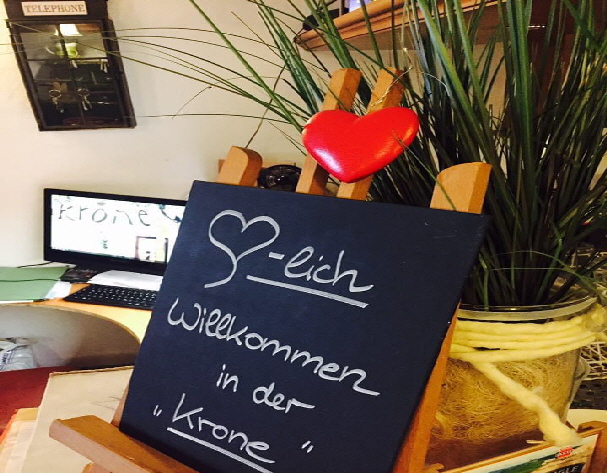 TELEPHONE
Krone
♡-lich
Willkommen
in der
"Krone"